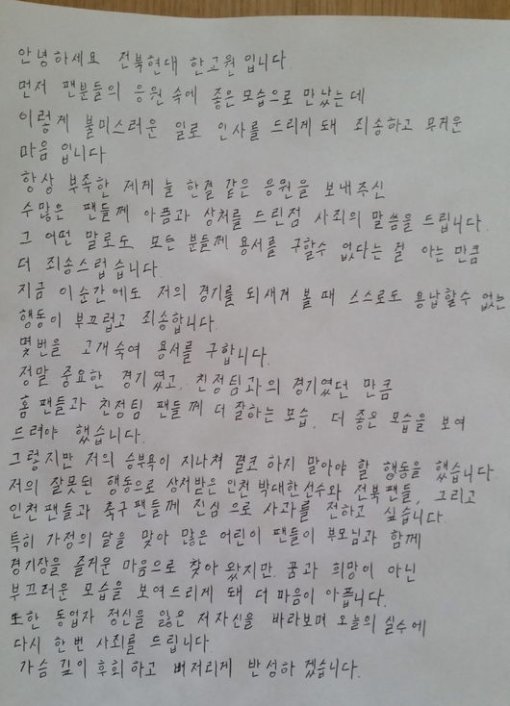 안녕하세요 전북현대 한교원 입니다.
먼저 팬분들의 응원 속에 좋은 모습으로 만났는데
이렇게 불미스러운 일로 인사를 드리게 돼 죄송하고 무거운
마음 입니다
항상 부족한 제게 늘 한결 같은 응원을 보내주신
수많은 팬들께 아픔과 상처를 드린점 사죄의 말씀을 드립니다.
그 어떤 말로도 모든 분들께 용서를 구할수 없다는 걸 아는 만큼
더 죄송스럽 습니다
지금 이 순간에도 저의 경기를 되새겨 볼 때 스스로도 용납할수 없는
행동이 부끄럽고 죄송합니다.
몇번을 고개숙여 용서를 구합니다.
정말 중요한 경기 였고, 친정팀과의 경기였던 만큼
홈 팬들과 친정팀 팬들께 더 잘하는 모습, 더 좋은 모습을 보여
드려야 했습니다.
그렇지만 저의 승부욕이 지나쳐 결코 하지 말아야 할 행동을 했습니다
저의 잘못된 행동으로 상처받은 인천 박대한선수와 전북팬들, 그리고
인천팬들과 축구팬들께 진심 으로 사과를 전하고 싶습니다.
특히 가정의 달을 맞아 많은 어린이 팬들이 부모님과 함께
경기장을 즐거운 마음으로 찾아 왔지만, 꿈과 희망이 아닌
부끄러운 모습을 보여드리게 돼 더 마음이 아픕니다.
또한 동업자 정신을 잃은 저자신을 바라보며 오늘의 실수에
다시 한번 사죄를 드립니다.
가슴 깊이 후회 하고 뼈저리게 반성하 겠습니다.